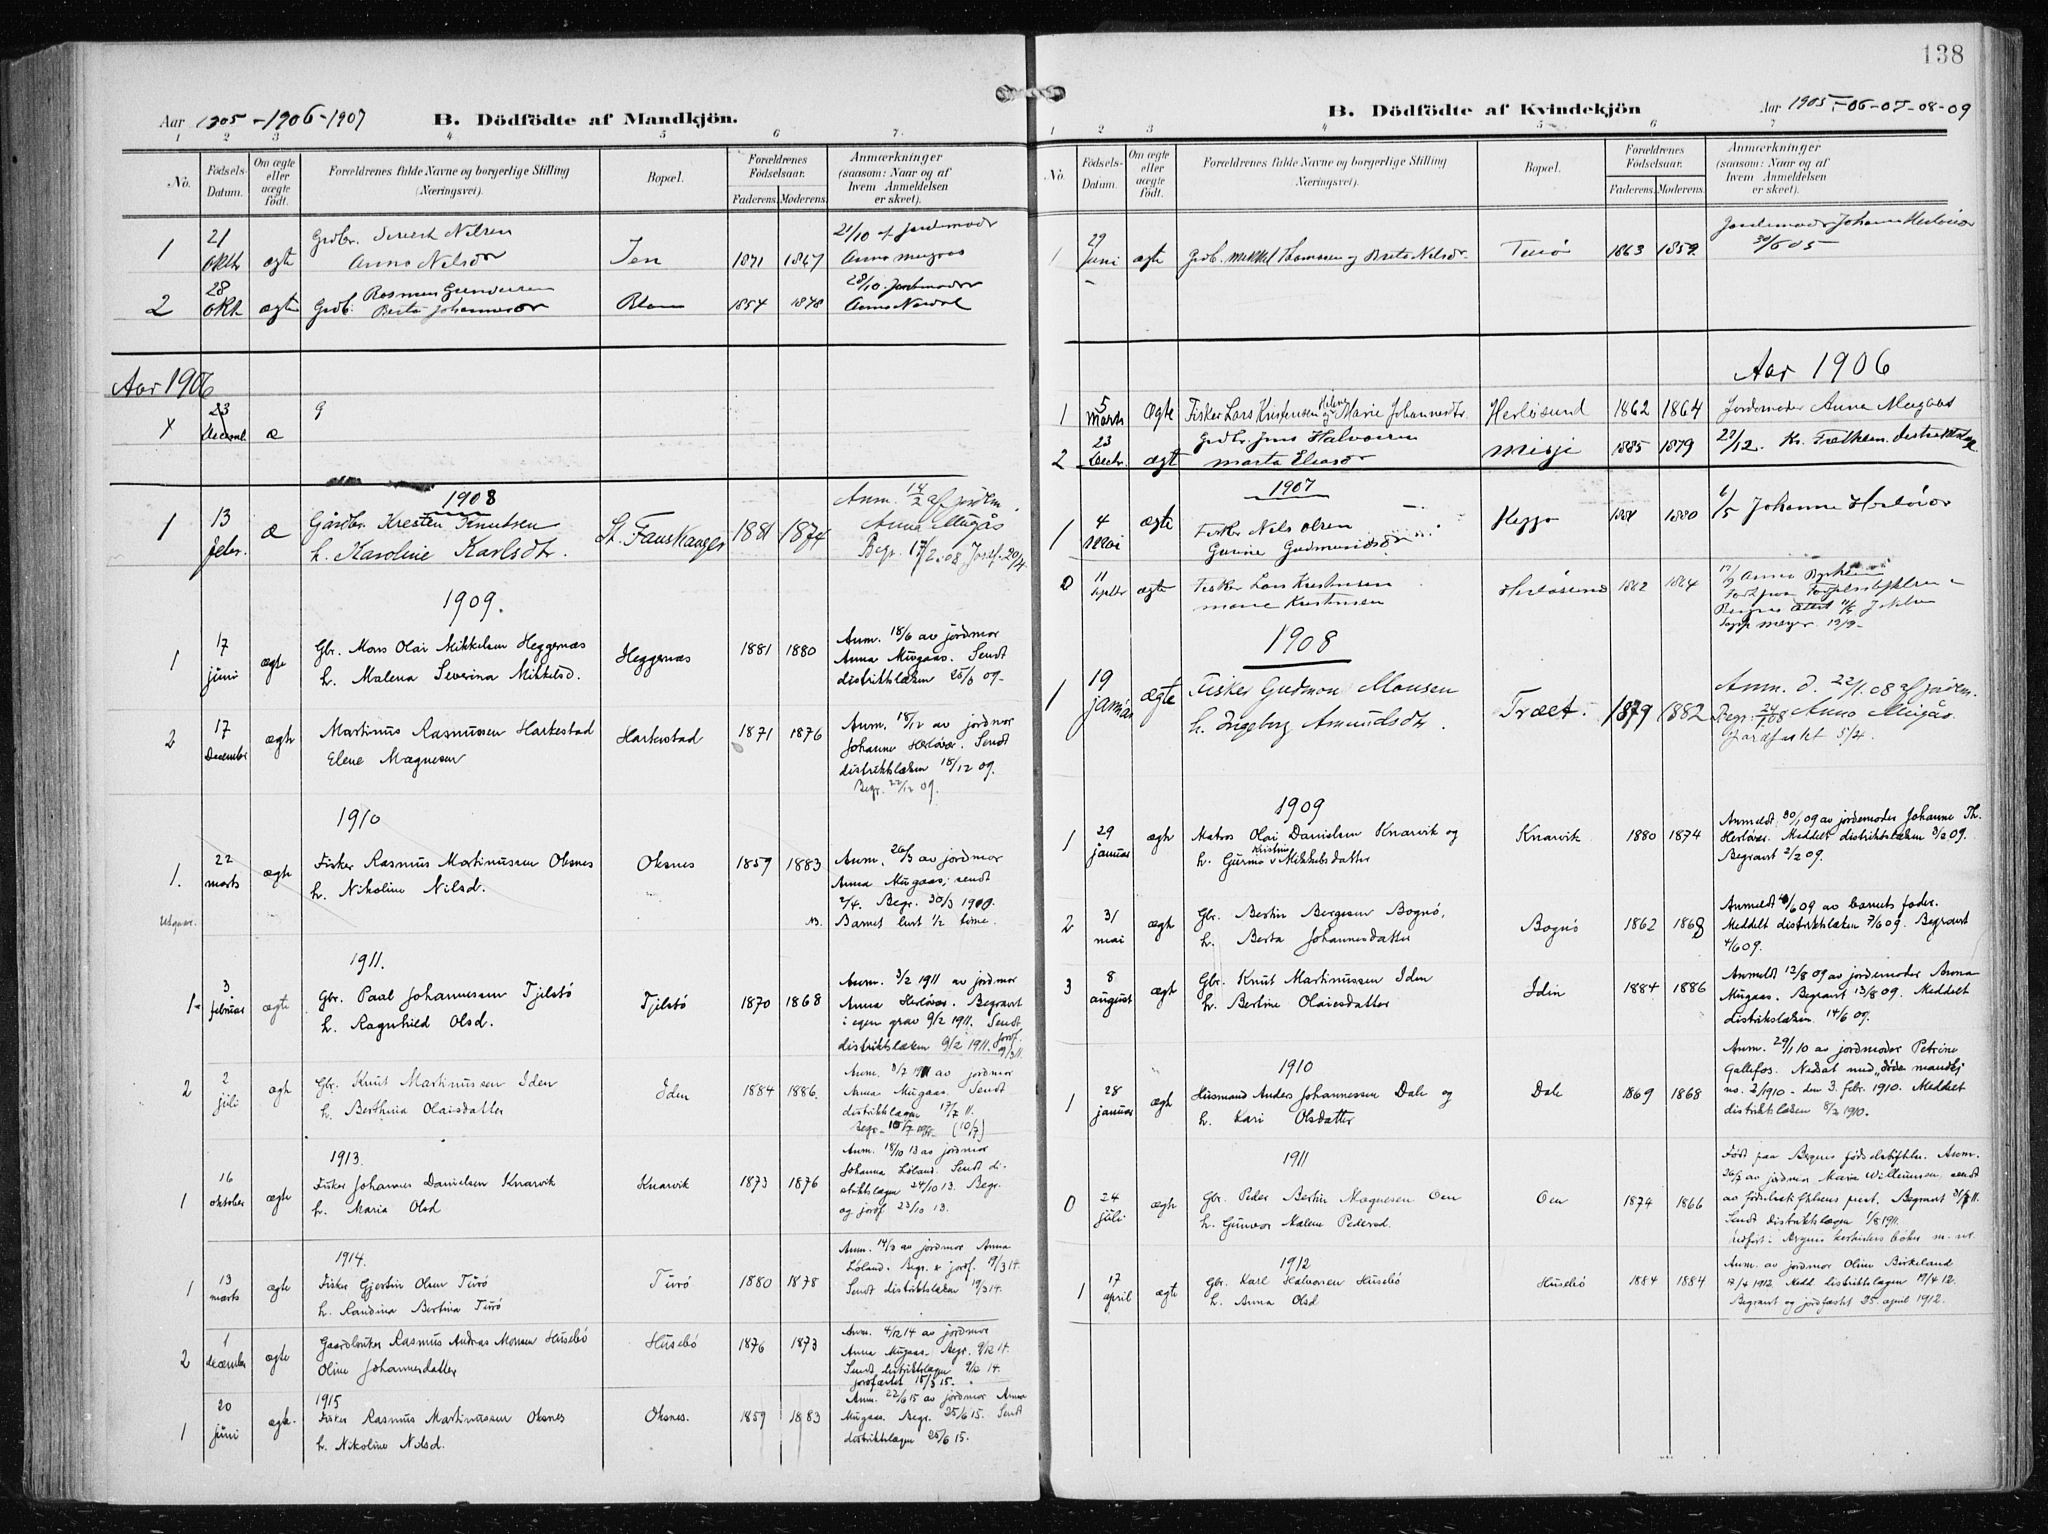 138
Aar 1905-1906-1907
B. Dödfödte af Mandkjön.
1 2 3 4 5 6 7.
No.
Födsels-Datum.
Om ægte eller uægte födt.
Forældrenes fulde Navne og borgerlige Stilling (Næringsvei).
Bopæl.
Forældrenes Födselsaar.
Faderens. Moderens.
Anmærkninger (saasom: Naar og af hvem Anmeldelsen er skeet).
1 21 oktbr ægte Grdbr. Nilsen
Anna Nilsdr 1867 21/10 af jordemodr
Anna Mugaas
2 28 okt. ægte Grdb. Rasmus Gundersen
Berta Johannesdr Blom 1854 1878 28/10 Jordemoder
Anna
Aar 1906
23 Decemb. æ
1908
1 13 febr. æ Gårdbr. Kresten Knutsen
h. Karoline Karlsdtr. St. Fauskanger 1881 1874 Anm. 14/2 af jordem.
Anna Mugås
Begr. 17/2.08 Jordf. 20/4
1909.
1 17 juni ægte Gbr. Mons Olai Mikkelsen Heggernæs
h. Malena Severina Mikkelsd. Heggernæs 1881 1880 Anm. 18/6 av jordmor
Anna Mugaas. Sendt
distriktslæken 25/6 09.
2 17 December ægte Martinus Rasmussen Harkestad
Elene Magnesen Harkestad 1871 1876 Anm. 18/12 av jordmor
Johanne Herlöver. Sendt
distriktslæken 18/12 09.
Begr. 22/12 09.
1910
1. 22 marts ægte Fisker Rasmus Martinussen Oksnes
h. Nikoline Nilsd. Oksnes 1859 1883 Anm. 26/3 av jordmor
Anna Mugaas, sendt
2/4. Begr. 30/3 1910.
Utgaar. NB. Barnet levt 1/2 time.
1911.
1 3 februar ægte Gbr. Paal Johannessen Tjelstö
h. Ragnhild Olsd. Tjelstö 1870 1868 Anm. 3/2 1911 av jordmor
Anna Herlöver. Begravt
i egen grav 9/2 1911. Sendt
distriktslæken 9/2 1911. Jordf.
19/3 11.
2 2 juli ægte Gbr. Knut Martinussen Iden
h. Berthina Olaisdatter Iden 1884 1886. Anm. 3/7 1911 av jordmor
Anna Mugaas. Sendt
distriktslægen 17/7 11.
Begr. (10/7)
1913.
1 16 oktober ægte Fisker Johannes Danielsen Knarvik
h. Maria Olsd Knarvik 1873 1876 Anm. 18/10 13 av jordmor
Johanna Löland. Sendt di-
striktslægen 24/10 13. Begr.
og jordf. 23/10 13.
1914.
1 13 marts ægte Fisker Gjertin Olsen Turö
h. Randina Bertina Turö Turö 1880 1878 Anm. 14/3 av jordmor Anna
Löland. Begr. & jordf. 19/3 14.
Sendt distriktslæken 19/3 14.
2 1 december ægte Gaardbruker Rasmus Andreas Monsen Husebö
Oline Johannesdatter Husebö 1876 1873 Anm. 4/12 14 av jordmor
Anna Mugaas. Begr. 9/12 14.
Sendt distriktslægen 9/12 14.
jordfæstet 15/3 15.
1915
1 20 juni ægte Fisker Rasmus Martinussen Oksnes
h. Nikoline Nilsd. Oksnes. 1859 1883 Anm. 22/6 15 av jordmor Anna
Mugaas. Begr. 25/6 15. Sendt
distriktslægen 25/6 15.
B. Dödfödte af Kvindekjön
Aar 1905-06-07-08-09
1 2 3 4 5 6 7
No.
Födsels-Datum.
Om ægte eller uægte födt.
Forældrenes fulde Navne og borgerlige Stilling (Næringsvei).
Bopæl.
Forældrenes Födselsaar.
Faderens. Moderens.
Anmærkninger (saasom: Naar og af hvem Anmeldelsen er skeet).
1 29 Juni ægte Grdb. Mikkel Thomasen og Brita Nilsdr. Turö 1863 1859. Jordemoder Johanne Herlöver
30/6 05
Aar 1906
1 5 Marts Ægte Fisker Lars Kristensen og Helene Marie Johannesdtr. Herlösund 1862 1864 Jordemoder Anna Mugaas
2 23 Decbr. ægte Grdbr. Jens Halvorsen
Marta Eliasdr Misje 1885 1879 27/12. Kr. distriktslæge
1907
1 4 Mai ægte Fisker Nils Olsen
Gurine Gudmundsdr Heggø 1880 6/5 Johanne Herlöver
0 11 septbr ægte Fisker Lars Kristensen
Marie Kristensen Herlösund 1862 1864 Anna
Bergens
1908
1 19 januar ægte Fisker Gudmon Monsen
h. Ingeborg Amundsdtr. Træet. 1879 1882 Anm. d. 22/1.08 af jordem.
Begr. 24/1 08 Anna Mugås
Jordfæstet 5/4
1909
1 29 januar ægte Matros Olai Danielsen Knarvik og
h. Gurina Kristine Mikkelsdatter Knarvik 1880 1874 Anmeldt 30/1 09 av jordemoder Johanne Th.
Herlöver. Meddelt distriktslæken 3/2 09.
Begravt 2/2 09.
2 31 mai ægte Gbr. Bertin Bergesen Bognö,
h. Berta Johannesdatter Bognö 1862 1868 Anmeldt /6 09 av barnets fader.
Meddelt distriktslæken 7/6 09. Begravt
4/6 09.
3 8 august ægte Gbr. Knut Martinussen Iden
h. Bertine Olaiesdatter Iden 1884 1886 Anmeldt 12/8 09 av jordemoder Anna
Mugaas. Begravt 13/8 09. Meddelt
distrikslæken 14/6 09.
1910
1 28 januar ægte Husmand Anders Johannessen Dale og
h. Kari Olsdatter Dale 1869 1868 Anm. 29/1 10 av jordmoder Petrine
Gallefos. Nedsat med „döde mandkj
no. 2/1910 - den 3. febr. 1910. Meddelt
distriktslæken 8/2 1910.
1911
0 24 juli ægte Gbr. Peder Bertin Magnesen Oen
h. Gunvor Malene Pedersd. Oen 1874 1866 Født paa Bergens fødselsstiftelse. Anm.
26/7 av jordmor Maria Willumsen, sendt
av fødselsstiftelsens prest. Begravt 31/7 11.
Sendt distriktslægen 1/8 1911.
Indført i Bergens kirkes bøker m. nr.
1912
1 17 april ægte Gbr. Karl Halvorsen Husebö
h. Anna Olsd Husebö 1884 1884 Anm. av jordmor Oline Birkeland
17/4 1912. Medd. distriktslægen 19/4 12.
Begravt og jordfæstet 25. april 1912.